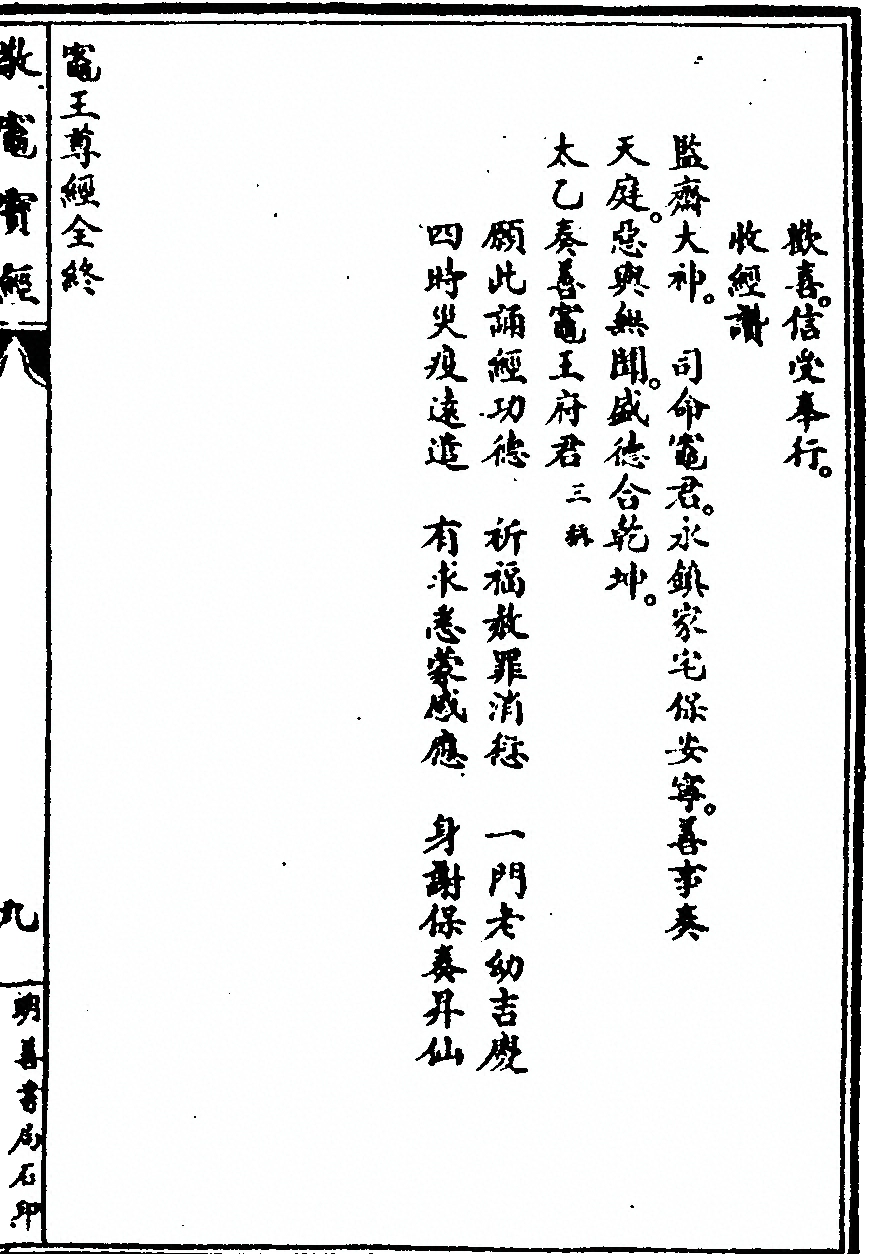 歡喜。信受奉行。
收經讚
監齋大神。 司命竈君。永鎮家宅保安寧。善事奏
天庭。惡與無聞。盛德合乾坤。
太乙奏善竈王府君 三稱
願此誦經功德 祈福赦罪消愆 一門老幼吉慶
四時災疫遠遁 有求悉蒙感應 身謝保奏昇仙
竈王尊經全終
敬竈寶經
九
明善書局石印